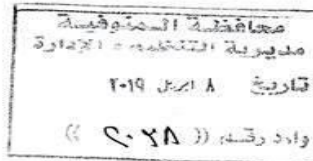 محافظة المنوفية
مديرية التنظيم والإدارة
تاريخ ٨ ابريل ٢٠١٩
وارد رقم (( ٢٠٧٨ ))